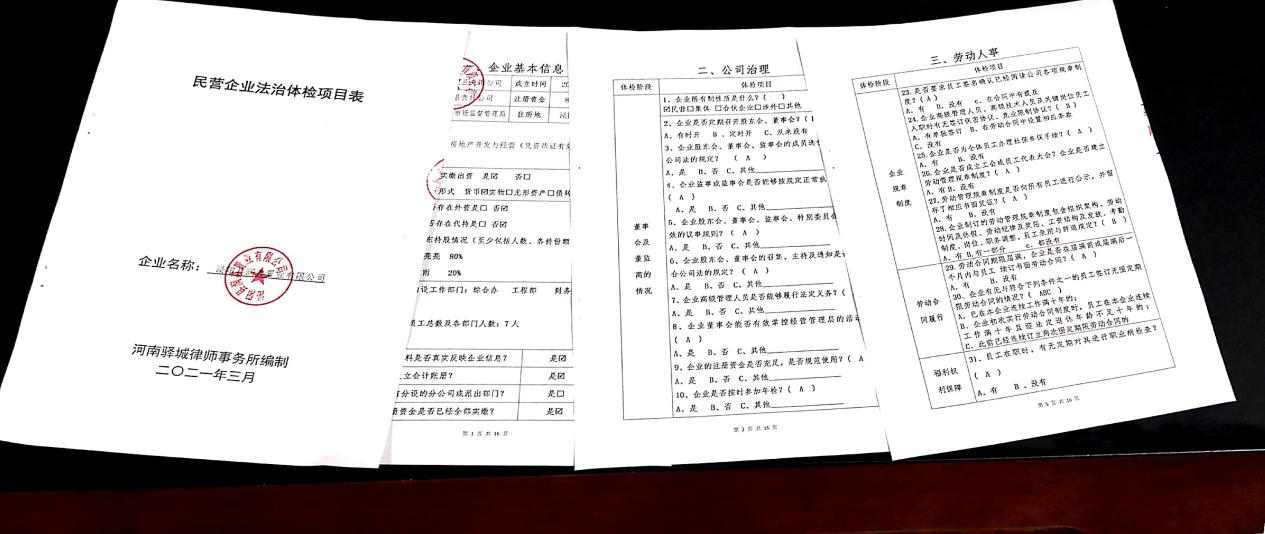 民营企业法治体检项目表
企业名称：
河南驿城律师事务所编制
二〇二一年三月
企业基本信息
成立时间 20
注册资金 8
市场监督管理局 住所地
房地产开发与经营（凭资质证有
实缴出资 是☑ 否☐
形式 货币☑实物☐无形资产☐债
存在外资是☐ 否☑
存在代持是☐ 否☑
东持股情况（至少包括人数、各持份额
亮亮 80%
雨 20%
设工作部门：综合办 工程部 财务
员工总数及各部门人数：7人
料是否真实反映企业信息？ 是☑
立会计账册？ 是☑
有分设的分公司或派出部门？ 是☐
册资金是否已经全部实缴？ 是☑
第 1 页 共 16 页
二、公司治理
体检阶段 体检项目
董事会及董监高的情况
1、企业所有制性质是什么？（ ）
☑民营☐集体 ☐合伙企业☐涉外☐其他
2、企业是否定期召开股东会、董事会？（
A、有时开 B 、定时开 C、从来没有
3、企业股东会、董事会、监事会的成员选
公司法的规定？ （ A ）
A、是 B、否 C、其他
4、企业监事或监事会是否能够按规定正常执
（ A ）
A、是 B、否 C、其他
5、企业股东会、董事会、监事会、特别委员会
效的议事规则？ （ A ）
A、是 B、否 C、其他
6、企业股东会、董事会的召集、主持及通知是
合公司法的规定？ （ A ）
A、是 B、否 C、其他
7、企业高级管理人员是否能够履行法定义务？（
A、是 B、否 C、其他
8、企业董事会能否有效掌控经营管理层的活动
（ A ）
A、是 B、否 C、其他
9、企业的注册资金是否充足，是否规范使用？（ A
A、是 B、否 C、其他
10、企业是否按时参加年检？（ A ）
A、是 B、否 C、其他
第 2 页 共 16 页
三、劳动人事
体检阶段 体检项目
企业规章制度
23、是否要求员工签名确认已经阅读公司各项规章制
度？（ A ）
A、有 B、没有 c、在合同中有提及
24、企业高级管理人员、高级技术人员及关键岗位员工
入职时有无签订保密协议、竞业限制协议？（ B ）
A、有单独签订 B、在劳动合同中设置相应条款
C、没有
25、企业是否为全体员工办理社保参保手续？（ A ）
A、有 B、没有
26、企业是否成立工会或员工代表大会？企业是否建立
劳动管理规章制度？（ A ）
A、有 B、没有
27、劳动管理规章制度是否向所有员工进行公示，并留
存了相应书面凭证？（ A ）
A、有 B、没有
28、企业制订的劳动管理规章制度包含组织架构、劳动
时间及休假、劳动纪律及奖惩、工资结构及发放、考勤
制度、岗位、职务调整、员工录用与辞退规定？（ B ）
A、有 B、有一部分 c、都没有
劳动合同履行
29、劳动合同期限届满，企业是否在届满前或届满后一
个月内与员工 续订书面劳动合同？（ A ）
A、有 B、没有
30、企业有无与符合下列条件之一的员工签订无固定期
限劳动合同的情况？（ ABC ）
A、已在本企业连续工作满十年的；
B、企业初次实行劳动合同制度时，员工在本企业连续
工作满十年且距法定退休年龄不足十年的；
C、此前已经连续订立两次固定期限劳动合同的
福利权利保障
31、员工在职时，有无定期对其进行职业病检查？
（ A ）
A、有 B 、没有
第 5 页 共 16 页